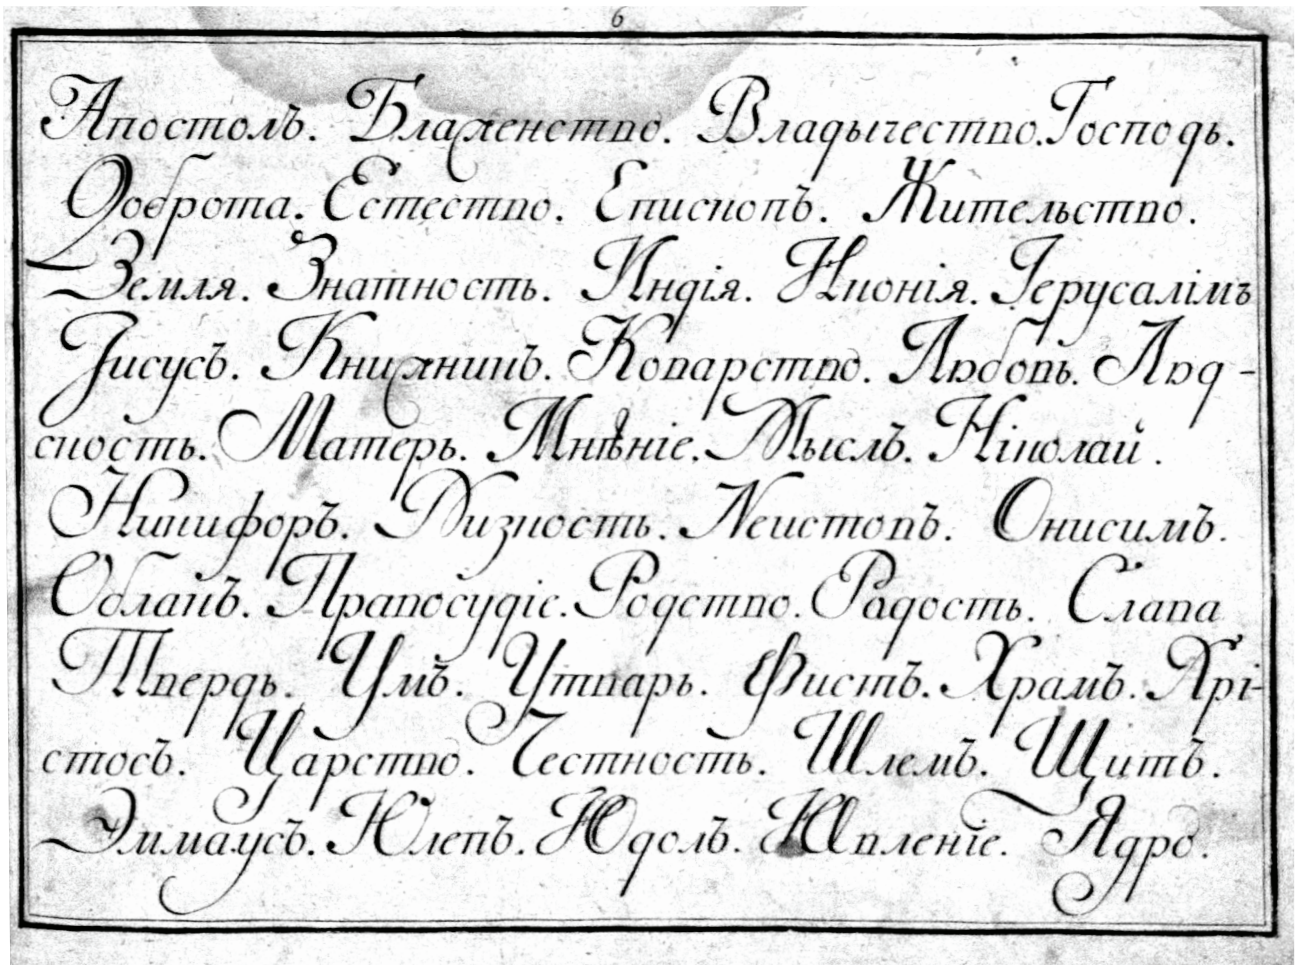 6
Апостолъ. Блаженство. Владычество. Господь.
Доброта. Естество. Епископъ. Жительство.
Земля. Знатность. Индія. Иконія. Іерусалімъ
Іисусъ. Книжникъ. Коварство. Любовь. Люд-
скость. Матерь. Мнѣніе. Мыслъ. Ніколай.
Никифоръ. Низкость. Неистовъ. Онисимъ.
Облакъ. Правосудіе. Родство. Радость. Слава
Твердь. Умъ. Утварь. Фистъ. Храмъ. Хрі-
стосъ. Царство. Честность. Шлемъ. Щитъ.
Эммаусъ. Юлепъ. Юдолъ. Явленіе. Ядро.